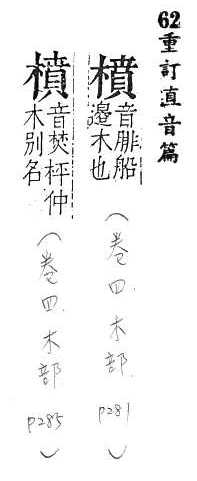 62重訂直音篇
橨音腓船邊木也(卷四木部p281)
橨音焚枰仲木别名(卷四木部p285)